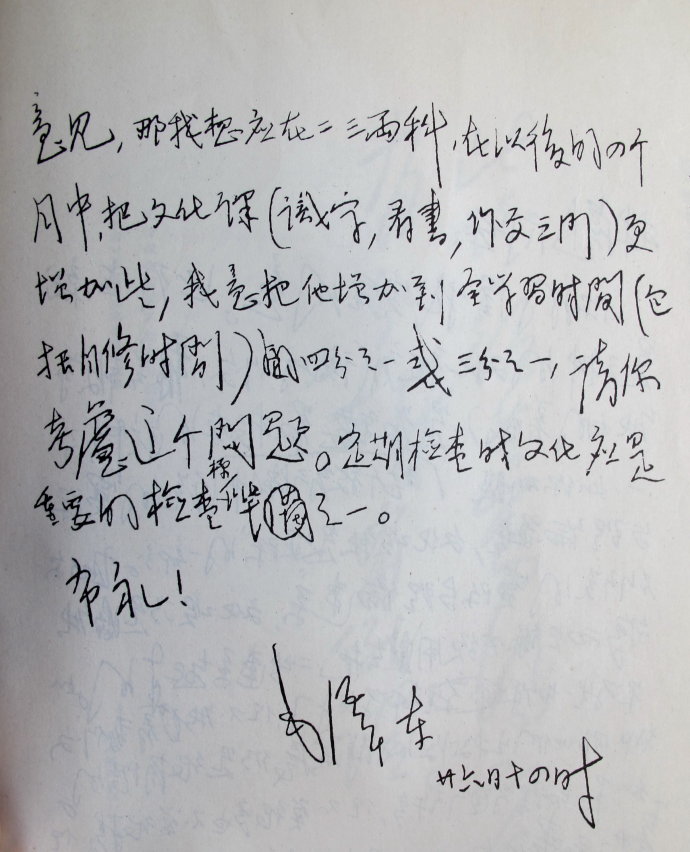 意见，那我想应在二三两科，在以後的四个
月中，把文化課（識字，看書，作文三門）更
增加些，我意把他增加到全学習時間（包
括自修時間）的四分之一或三分之一，請你
考慮这个問題。定期检查时文化应是
重要的检查標準之一。
布礼！
毛澤东
廿六日十四时